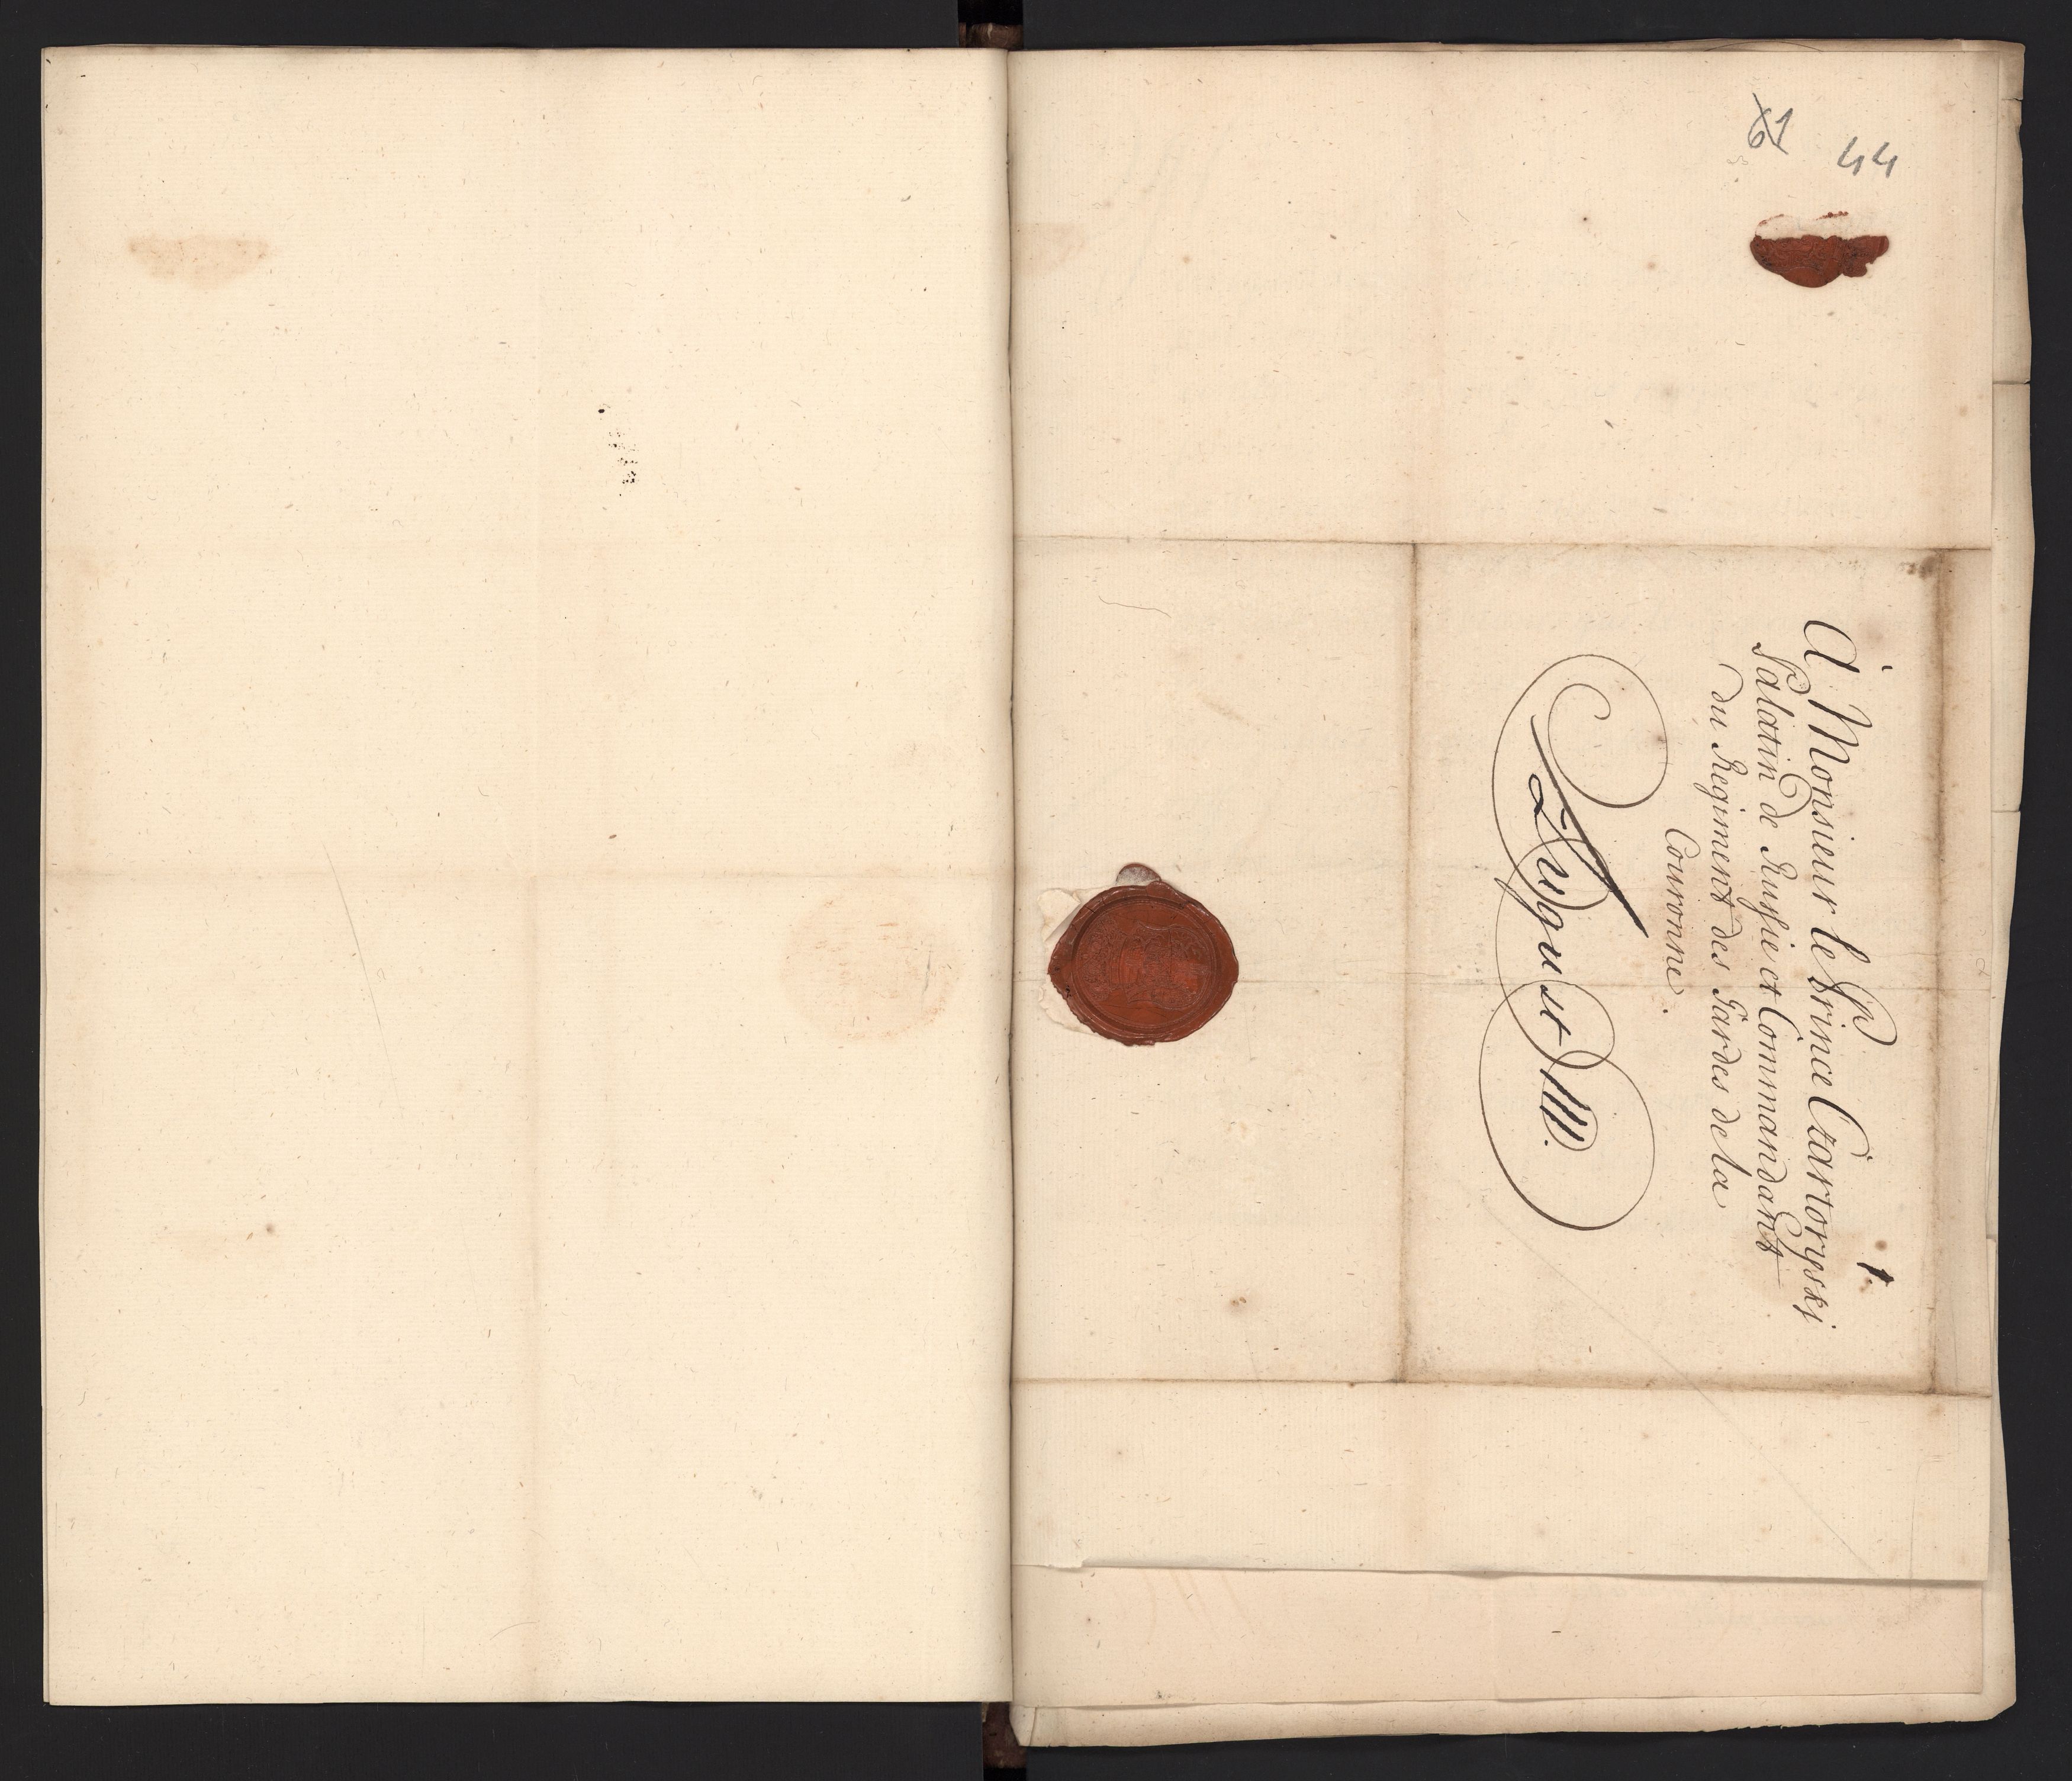 61 44
1.
À Monsieur le Prince Czartoryski
Palatin de Russie et Commandant
du Regiment des Gardes de la
Couronne.
August III.